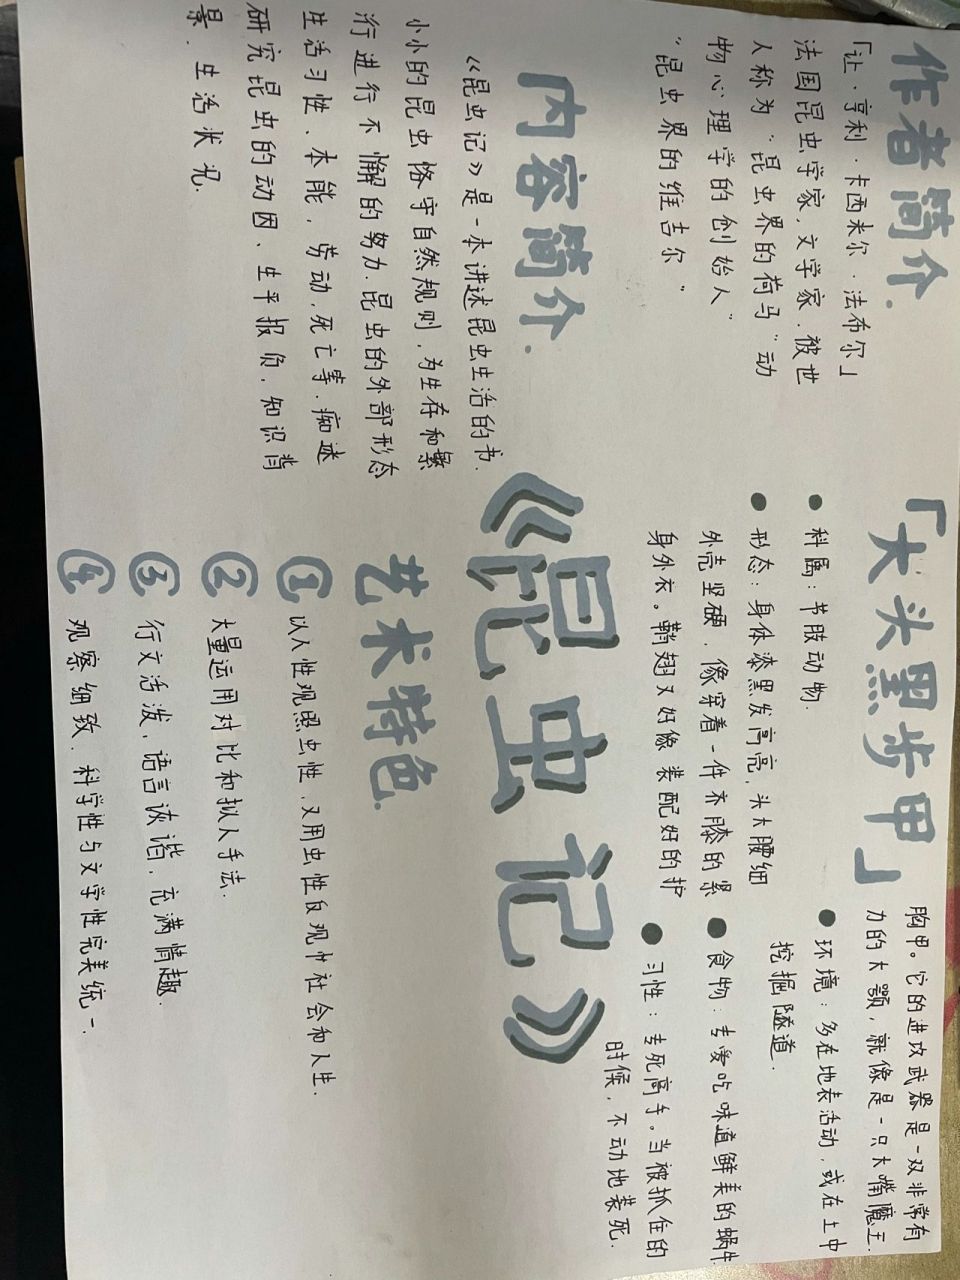 作者简介.
「让·亨利·卡西米尔·法布尔」
法国昆虫学家,文学家.被世
人称为“昆虫界的荷马”动
物心理学的创始人”
“昆虫界的维吉尔”
内容简介.
《昆虫记》是一本讲述昆虫生活的书.
小小的昆虫恪守自然规则,为生存和繁
衍进行不懈的努力.昆虫的外部形态
生活习性、本能,劳动,死亡等.痴迷
研究昆虫的动因、生平报负,知识背
景.生活状况.
「大头黑步甲」
●科属:节肢动物.
●形态:身体漆黑发高亮,头大腰细
外壳坚硬.像穿着一件亦膝的紧
身外衣。鞘翅又好像装配好的护
胸甲。它的进攻武器是一双非常有
力的大颚,就像是一只大嘴魔王.
●环境:多在地表活动.或在土中
挖掘隧道.
●食物:专爱吃味道鲜美的蜗牛
●习性:专死高手。当被抓住的
时候,不动地装死.
《昆虫记》
艺术特色.
① 以人性观照虫性,又用虫性反观中社会和人生.
② 大量运用对比和拟人手法.
③ 行文活泼,语言诙谐.充满情趣.
④ 观察细致.科学性与文学性完美统一.